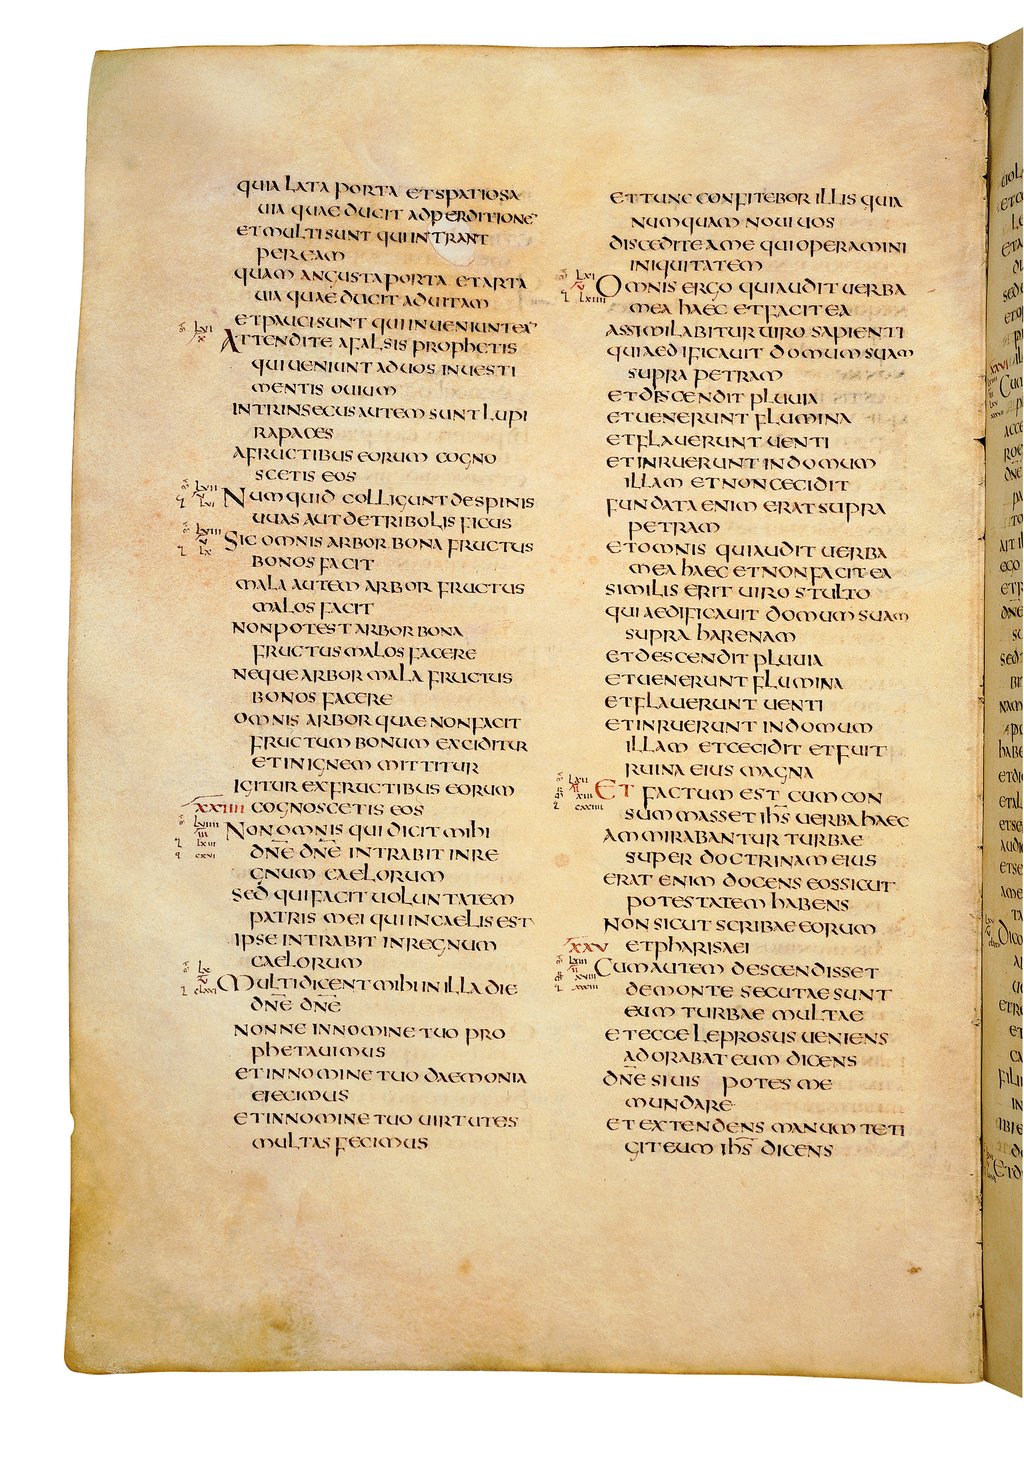 quia lata porta et spatiosa
uia quae ducit ad perditione
et multi sunt qui intrant
per eam
quam angusta porta et arta
uia quae ducit ad uitam
et pauci sunt qui inueniunt ea
lvi
x
Attendite a falsis prophetis
qui ueniunt ad uos in uesti
mentis ouium
intrinsecus autem sunt lupi
rapaces
a fructibus eorum cogno
scetis eos
lvii
v
lvi
Numquid colligunt de spinis
uuas aut de tribolis ficus
lviii
v
lx
Sic omnis arbor bona fructus
bonos facit
mala autem arbor fructus
malos facit
non potest arbor bona
fructus malos facere
neque arbor mala fructus
bonos facere
omnis arbor quae non facit
fructum bonum exciditur
et in ignem mittitur
igitur ex fructibus eorum
xxiiii cognoscetis eos
lviiii
iii
lxiii
cxvi
Non omnis qui dicit mihi
dñe dñe intrabit in re
gnum caelorum
sed qui facit uoluntatem
patris mei qui in caelis est
ipse intrabit in regnum
caelorum
lx
v
clxxi
Multi dicent mihi in illa die
dñe dñe
nonne in nomine tuo pro
phetauimus
et in nomine tuo daemonia
eiecimus
et in nomine tuo uirtutes
multas fecimus
et tunc confitebor illis quia
numquam noui uos
discedite a me qui operamini
iniquitatem
lxi
v
lxiiii
Omnis ergo qui audit uerba
mea haec et facit ea
assimilabitur uiro sapienti
qui aedificauit domum suam
supra petram
et discendit pluuia
et uenerunt flumina
et flauerunt uenti
et inruerunt in domum
illam et non cecidit
fundata enim erat supra
petram
et omnis qui audit uerba
mea haec et non facit ea
similis erit uiro stulto
qui aedificauit domum suam
supra harenam
et descendit pluuia
et uenerunt flumina
et flauerunt uenti
et inruerunt in domum
illam et cecidit et fuit
ruina eius magna
lxii
ii
xiii
cxxiiii
Et factum est cum con
summasset ihs uerba haec
ammirabantur turbae
super doctrinam eius
erat enim docens eos sicut
potestatem habens
non sicut scribae eorum
xxv et pharisaei
lxiii
ii
xviii
xxxiii
Cum autem descendisset
de monte secutae sunt
eum turbae multae
et ecce leprosus ueniens
adorabat eum dicens
dñe si uis potes me
mundare
et extendens manum teti
git eum ihs dicens